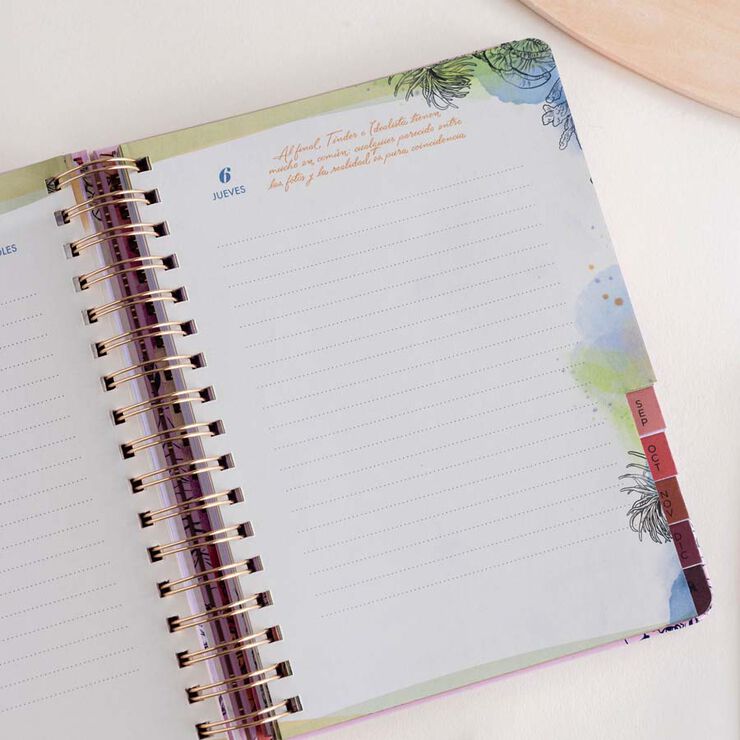 OLES
6
JUEVES
Al final, Tinder e Idealista tienen
mucho en común: cualquier parecido entre
las fotos y la realidad es pura coincidencia
SEP
OCT
NOV
DIC